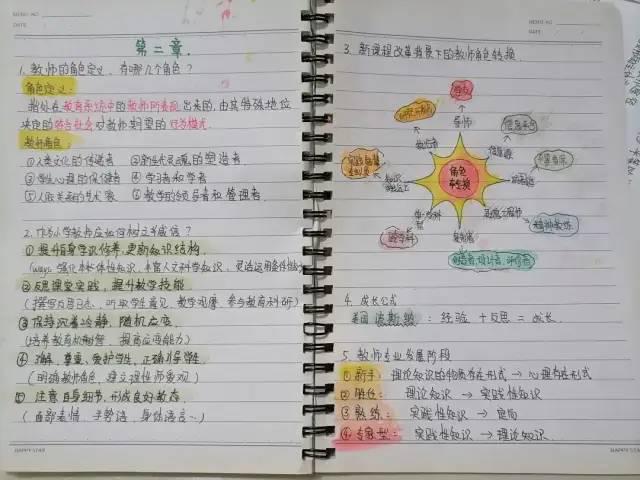 第二章.
1. 教师的角色定义. 有哪几个角色?
角色定义:
指处在教育系统中的教师所表现出来的,由其特殊地位
决定的符合社会对教师期望的行为模式.
教师角色:
①人类文化的传递者 ②新生灵魂的塑造者
③学生心理的保健者 ④学习者和学者
⑤人际关系的艺术家 ⑥教学的领导者和管理者.
2. 作为小学教师应如何树立威信?
①提升自身学识修养,更新知识结构.
(ways: 强化本体性知识,丰富人文科学知识,灵活运用条件性
②反思课堂实践,提升教学技能
(撰写反思日志,听取学生意见,教学观摩,参与教育科研)
③保持沉着冷静,随机应变.
(培养教育机智,提高应变能力)
④了解、尊重、爱护学生,正确引导学生.
(明确教师角色,建立理性师爱观)
⑤ 注意自身细节,形成良好教态.
(面部表情、手势语、身体语言…)
3. 新课程改革背景下的教师角色转换.
导师
角色
转换
信息源
精神教练
创造者,设计者,评价者
4. 成长公式
美国 波斯纳: 经验 + 反思 = 成长.
5. 教师专业发展阶段
①新手: 理论知识的物质存在形式 → 心理存在形式
②胜任: 理论知识 → 实践性知识
③熟练: 实践性知识 →
④专家型: 实践性知识 → 理论知识.
HAPPY STAR
HAPPY STAR